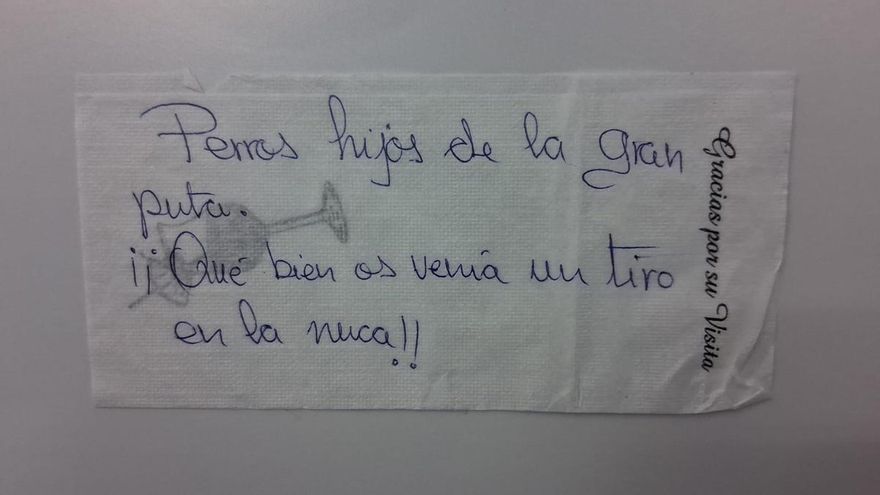 Perros hijos de la gran
puta.
¡¡Qué bien os venía un tiro
en la nuca!!
Gracias por su Visita